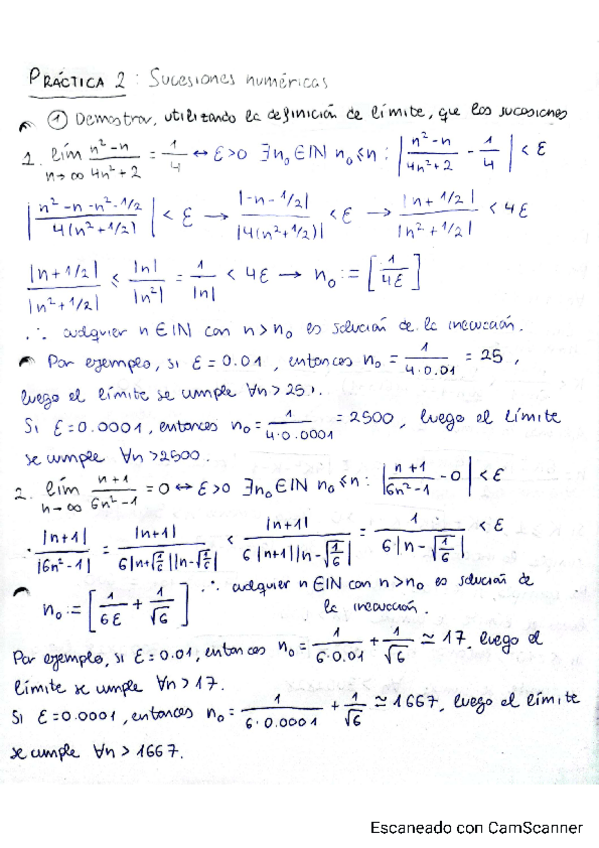 PRÁCTICA 2: Sucesiones numéricas
① Demostrar, utilizando la definición de límite, que las sucesiones
1. lím n→∞ (n²-n)/(4n²+2) = 1/4 ↔ ε>0 ∃n₀∈ℕ n₀≤n: |(n²-n)/(4n²+2) - 1/4| < ε
|(n²-n-n²-1/2)/(4(n²+1/2))| < ε → |-n-1/2|/|4(n²+1/2)| < ε → |n+1/2|/|n²+1/2| < 4ε
|n+1/2|/|n²+1/2| ≤ |n|/|n²| = 1/|n| < 4ε → n₀ := [1/4ε]
∴ cualquier n∈ℕ con n>n₀ es solución de la inecuación.
Por ejemplo, si ε=0.01, entonces n₀ = 1/(4·0.01) = 25,
luego el límite se cumple ∀n>25.
Si ε=0.0001, entonces n₀ = 1/(4·0.0001) = 2500, luego el límite
se cumple ∀n>2500.
2. lím n→∞ (n+1)/(6n²-1) = 0 ↔ ε>0 ∃n₀∈ℕ n₀≤n: |(n+1)/(6n²-1) - 0| < ε
∴ |n+1|/|6n²-1| = |n+1|/(6|n+√(1/6)||n-√(1/6)|) < |n+1|/(6|n+1||n-√(1/6)|) = 1/(6·|n-√(1/6)|) < ε
n₀ := [1/6ε + 1/√6] ∴ cualquier n∈ℕ con n>n₀ es solución de
la inecuación.
Por ejemplo, si ε=0.01, entonces n₀ = 1/(6·0.01) + 1/√6 ≃ 17, luego el
límite se cumple ∀n>17.
Si ε=0.0001, entonces n₀ = 1/(6·0.0001) + 1/√6 ≃ 1667, luego el límite
se cumple ∀n>1667.
Escaneado con CamScanner